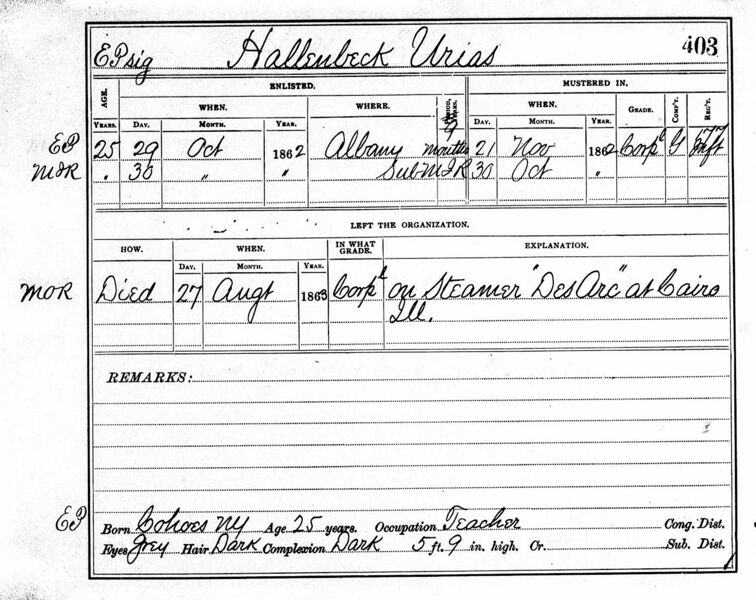 EP sig Hallenbeck Urias 403
AGE. ENLISTED. MUSTERED IN.
WHEN. WHERE. PERIOD, YEARS. WHEN. GRADE. COMP'Y. REG'T.
YEARS. DAY. MONTH. YEAR. DAY. MONTH. YEAR.
EP 25 29 Oct 1862 Albany 9 months 21 Nov 1862 Corpl G 177 Inft
MIR " 30 " " Sub MIR 30 Oct "
LEFT THE ORGANIZATION.
HOW. WHEN. IN WHAT GRADE. EXPLANATION.
DAY. MONTH. YEAR.
MOR Died 27 Augt 1863 Corpl on Steamer "Des Arc" at Cairo
Ill.
REMARKS:
EP Born Cohoes NY Age 25 years. Occupation Teacher Cong. Dist.
Eyes Grey Hair Dark Complexion Dark 5 ft. 9 in. high. Cr. Sub. Dist.